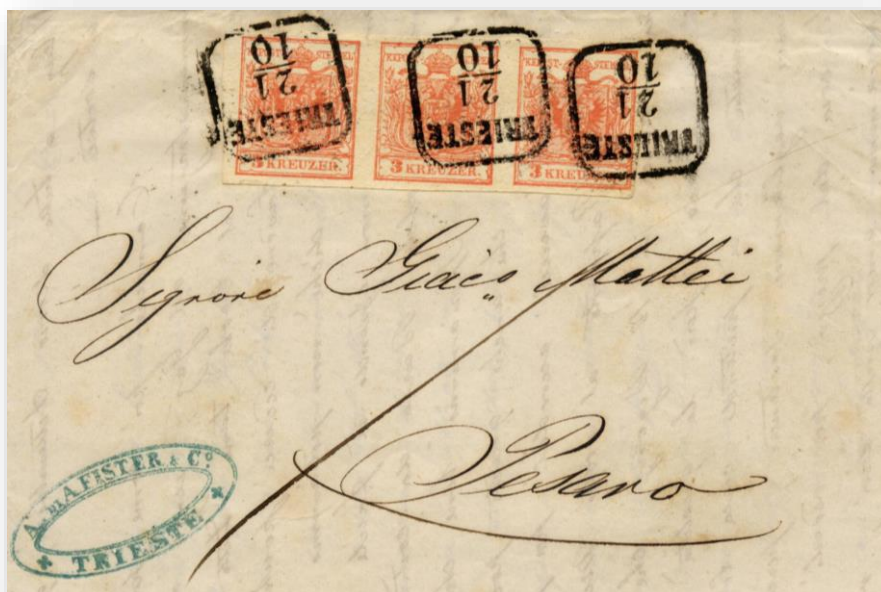 TRIESTE
21
10
TRIESTE
21
10
TRIESTE
21
10
3 KREUZER.
3 KREUZER.
3 KREUZER.
Signore Giac.o Mattei
Pesaro
A. di A. FISTER & C.o
TRIESTE